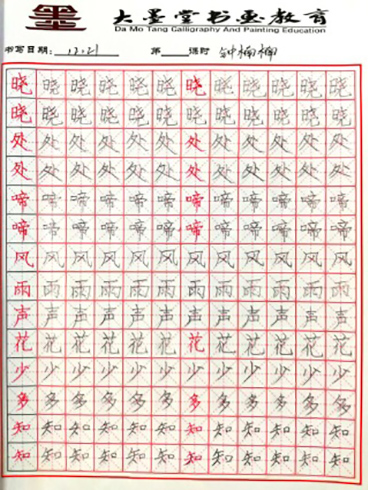 墨 大墨堂书画教育
Da Mo Tang Calligraphy And Painting Education
书写日期： 12.21 第 课时 钟楠楠
晓晓晓晓晓晓晓晓晓晓晓晓
晓晓晓晓晓晓晓晓晓晓晓晓
处处处处处处处处处处处处
处处处处处处处处处处处处
啼啼啼啼啼啼啼啼啼啼啼啼
啼啼啼啼啼啼啼啼啼啼啼啼
风风风风风风风风风风风风
雨雨雨雨雨雨雨雨雨雨雨雨
声声声声声声声声声声声声
花花花花花花花花花花花花
少少少少少少少少少少少少
多多多多多多多多多多多多
知知知知知知知知知知知知
知知知知知知知知知知知知